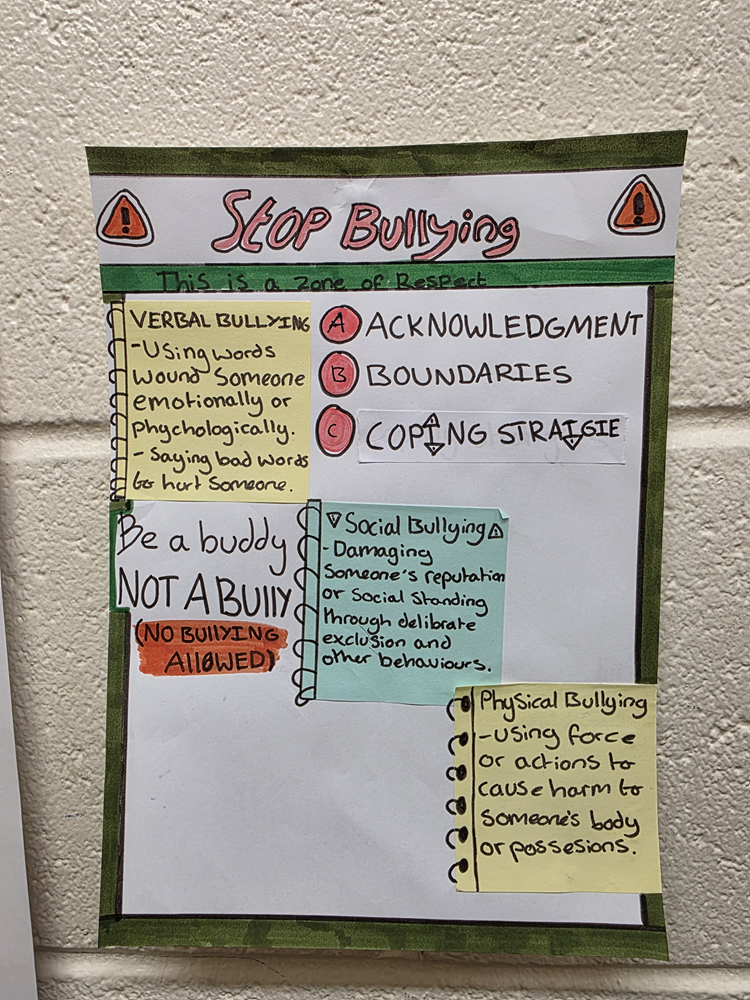 Stop Bullying
This is a zone of Respect
VERBAL BULLYING
-Using words
wound Someone
emotionally or
Phychologically.
- Saying bad words
to hurt Someone.
A ACKNOWLEDGMENT
B BOUNDARIES
C COPING STRAIGIE
Be a buddy
NOT A BUllY
(NO BUllYING
AllOWED)
Social Bullying
- Damaging
Someone's reputation
or Social Standing
through delibrate
exclusion and
other behaviours.
Physical Bullying
-using force
or actions to
cause harm to
Someone's body
or possesions.